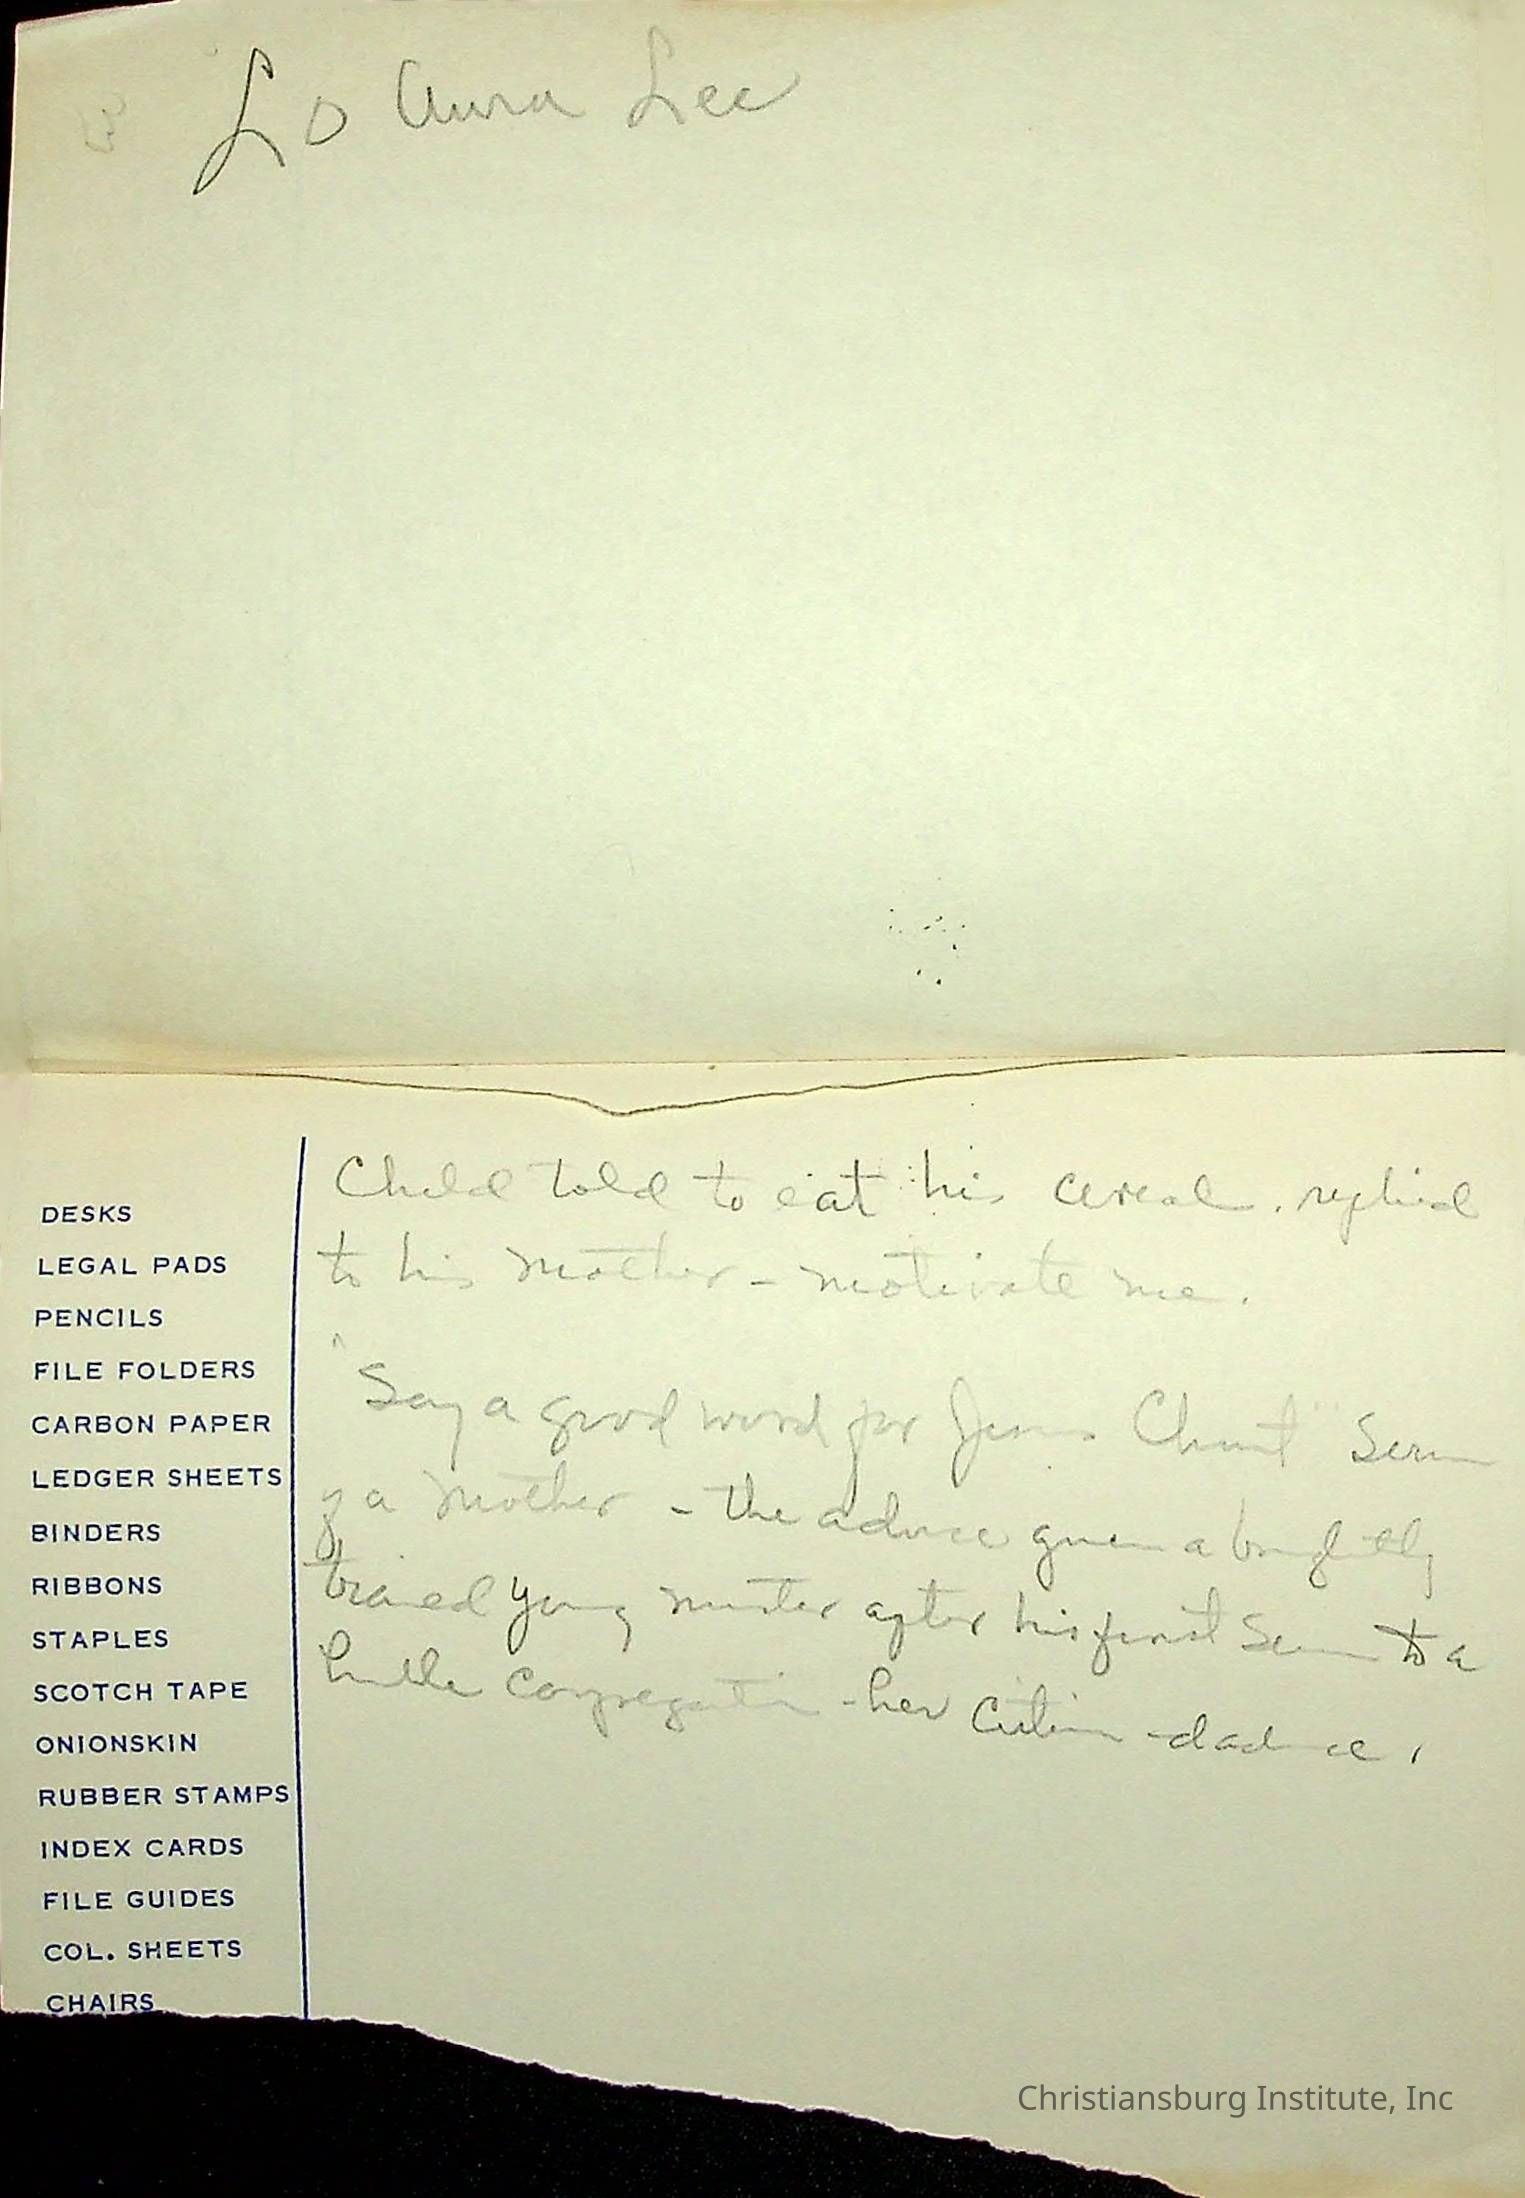 Lo Aura Lee
Child told to eat his cereal. replied
to his mother - motivate me.
"Say a good word for Jesus Christ" Serm
of a mother - the advice given a brightly
trained young minister after his first Serm to a
humble congregation - her
DESKS
LEGAL PADS
PENCILS
FILE FOLDERS
CARBON PAPER
LEDGER SHEETS
BINDERS
RIBBONS
STAPLES
SCOTCH TAPE
ONIONSKIN
RUBBER STAMPS
INDEX CARDS
FILE GUIDES
COL. SHEETS
CHAIRS
Christiansburg Institute, Inc